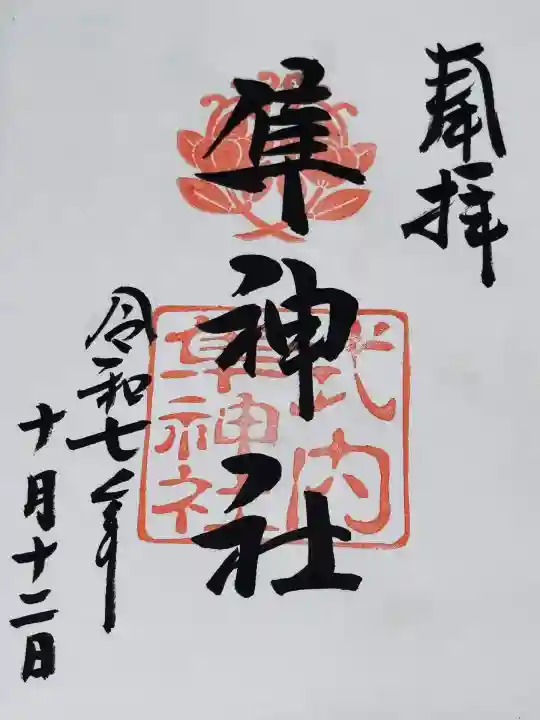 奉拝
隼神社
式内
隼神社
令和七年
十月十二日